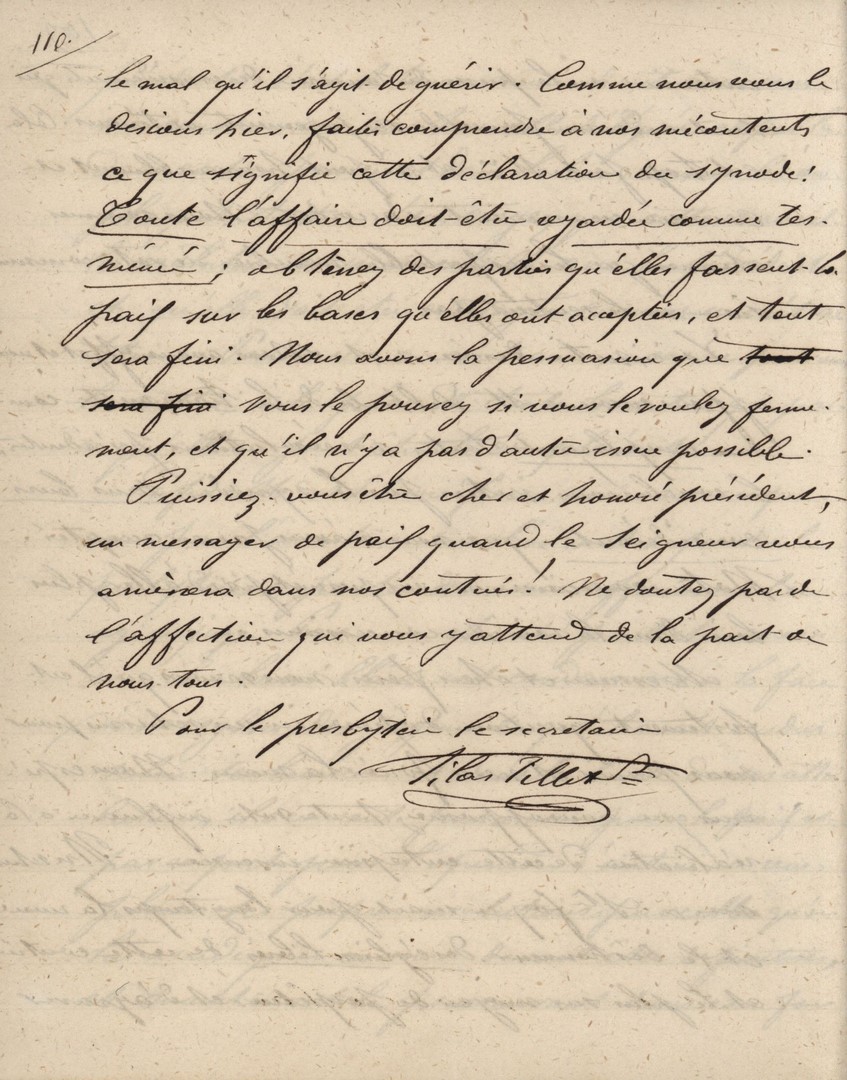 110.
le mal qu'il s'agit de guérir. Comme nous vous le
disions hier, faites comprendre à nos mécontents
ce que signifie cette déclaration du synode!
Toute l'affaire doit-être regardée comme ter-
minée ; obtenez des parties qu'elles fassent la
paix sur les bases qu'elles ont acceptées, et tout
sera fini. Nous avons la persuasion que tout
sera fini vous le pouvez si vous le voulez ferme-
ment, et qu'il n'y a pas d'autre issue possible.
Puissiez-vous être cher et honoré président,
un messager de paix quand le Seigneur vous
amènera dans nos contrées! Ne doutez pas de
l'affection qui vous y attend de la part de
nous tous.
Pour le presbytère le secretaire
Silas Tillet